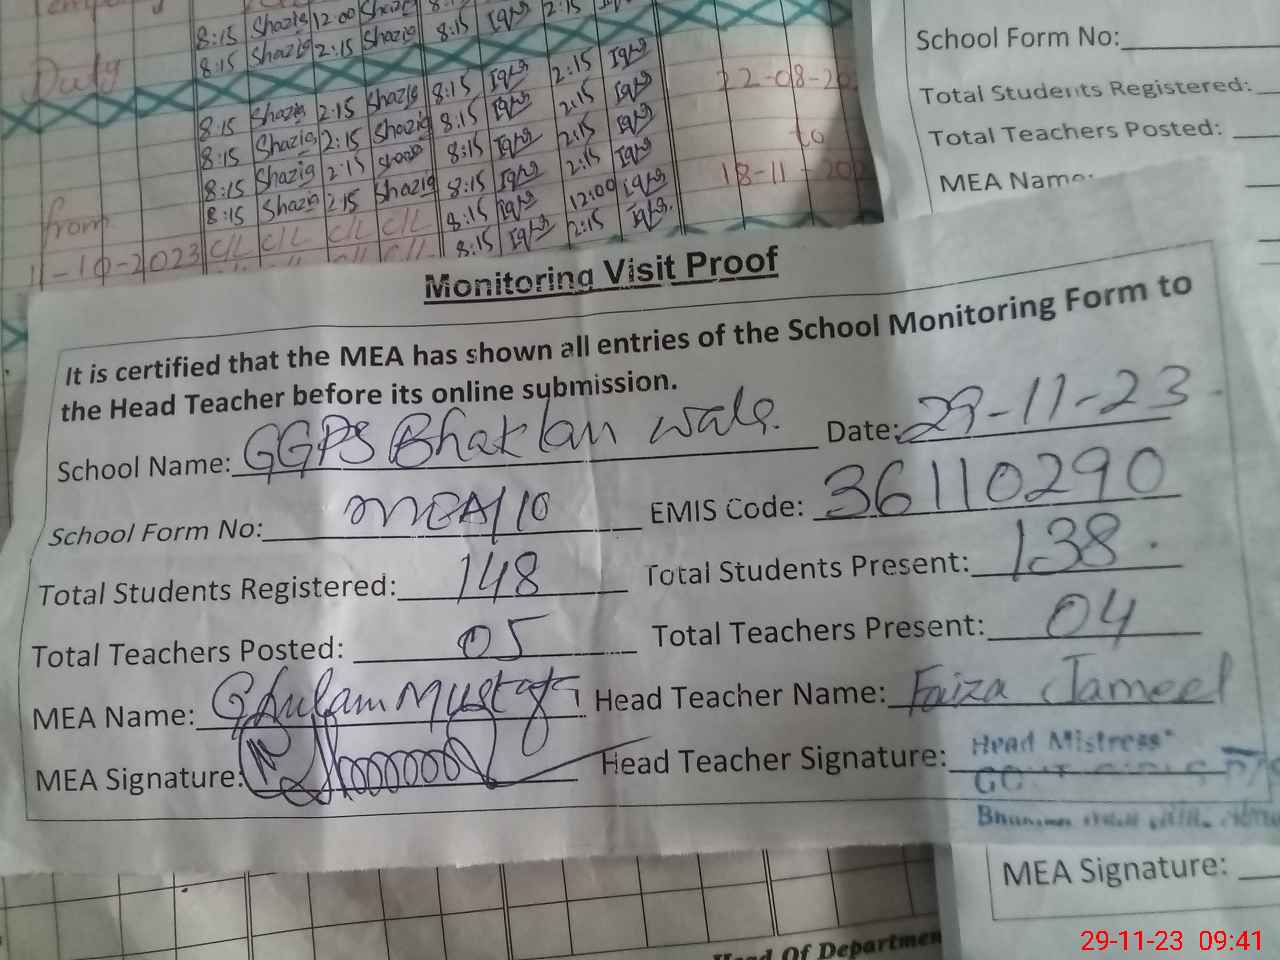 Duty
8:15 Shazia 12:00
8:15 Shazia 2:15 Shazia 8:15 Iqra 2:15
8:15 Shazia 2:15 Shazia 8:15 Iqra 2:15 Iqra
8:15 Shazia 2:15 Shazia 8:15 Iqra 2:15 Iqra
8:15 Shazia 2:15 8:15 Iqra 2:15 Iqra
8:15 Shazia 2:15 Shazia 8:15 Iqra 2:15 Iqra
C/L C/L C/L C/L 8:15 Iqra 12:00 Iqra
8:15 Iqra 2:15 Iqra
from
1-10-2023
22-08-20
to
18-11-202
School Form No:
Total Students Registered:
Total Teachers Posted:
MEA Name:
Monitoring Visit Proof
It is certified that the MEA has shown all entries of the School Monitoring Form to
the Head Teacher before its online submission.
School Name: GGPS Bhaklan wala. Date: 29-11-23
School Form No: MEA/10 EMIS Code: 36110290
Total Students Registered: 148 Total Students Present: 138
Total Teachers Posted: 05 Total Teachers Present: 04
MEA Name: Ghulam Mustafa Head Teacher Name: Faiza Jameel
MEA Signature: Head Teacher Signature:
Head Mistress
MEA Signature:
Head Of Departmen
29-11-23 09:41